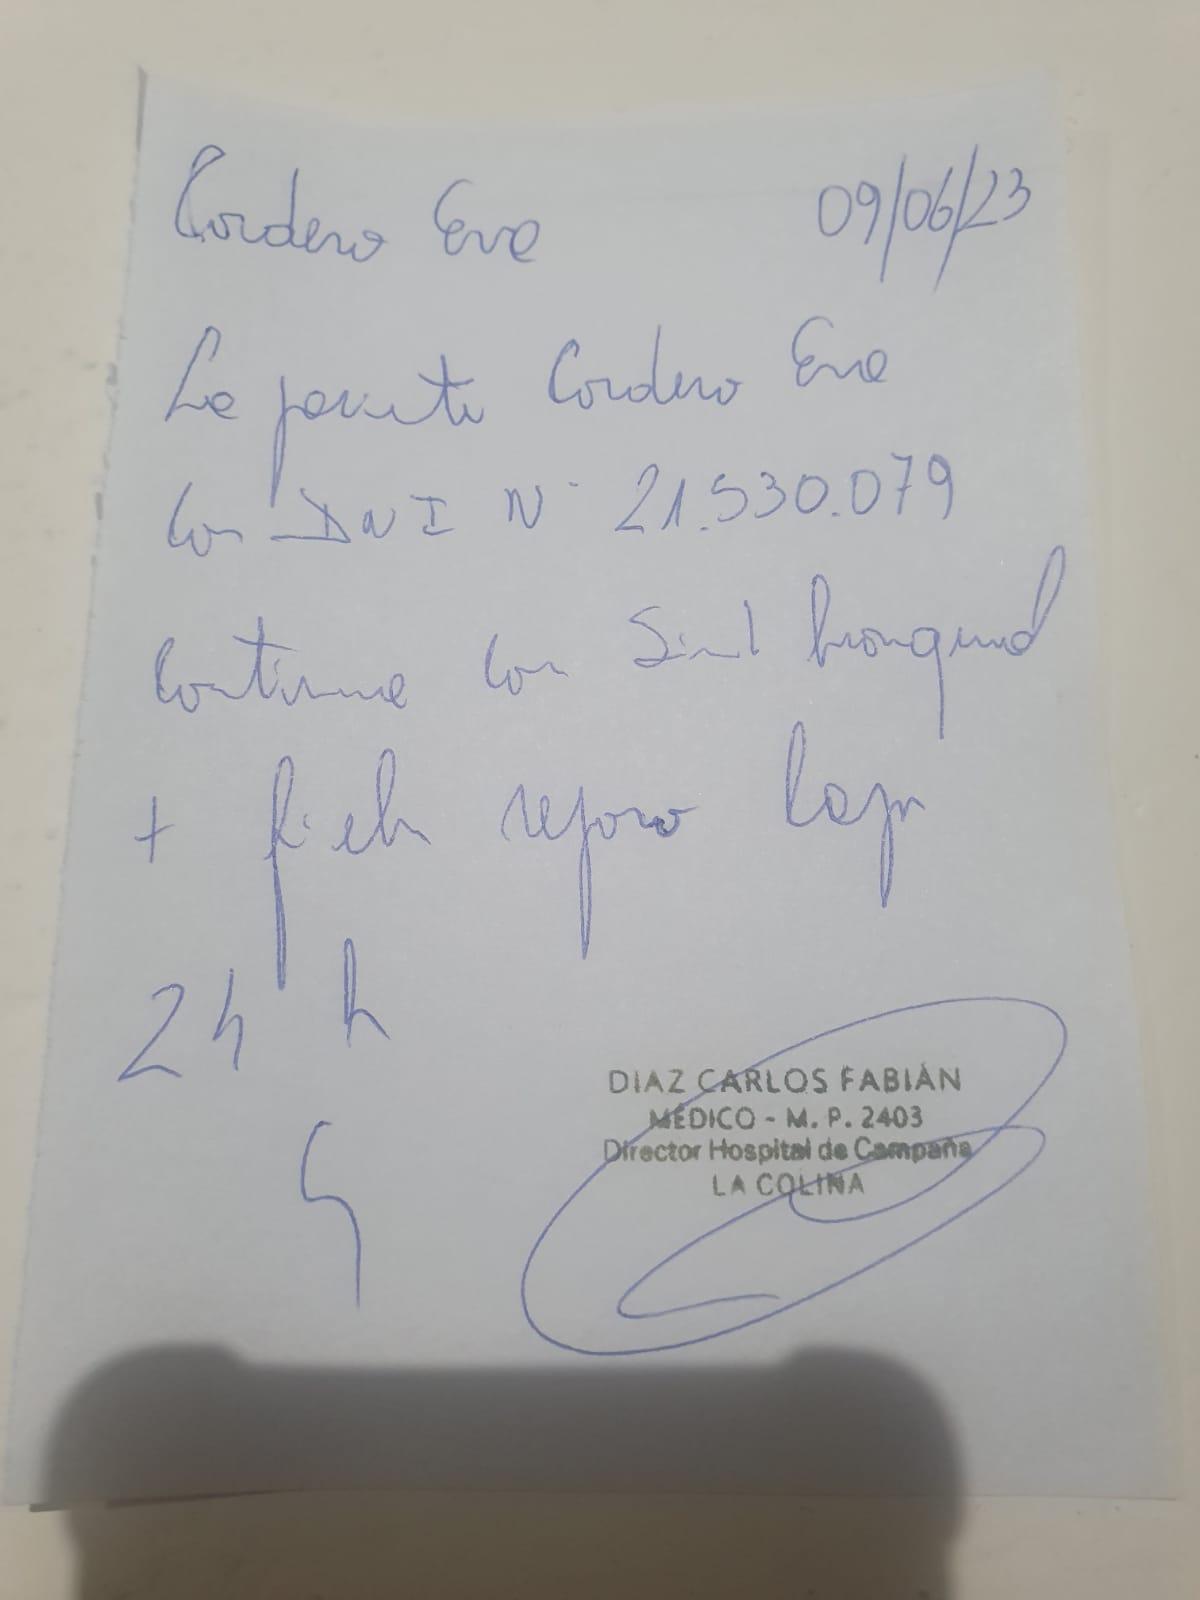 Cordero Eva 09/06/23
La paciente Cordero Eva
con DNI N° 21.530.079
continua con Sind bronquial
+ fiebre reposo
24 h
DIAZ CARLOS FABIÁN
MÉDICO - M. P. 2403
Director Hospital de Campaña
LA COLINA